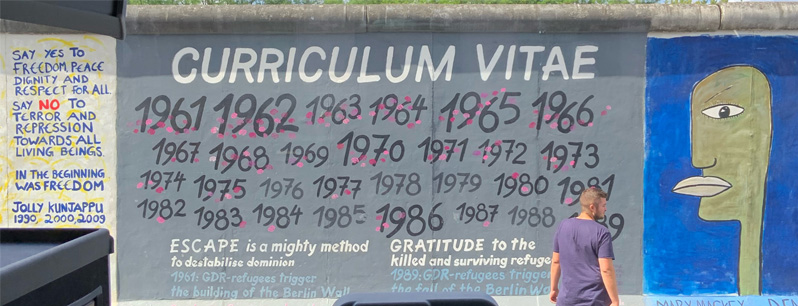 SAY YES TO
FREEDOM, PEACE
DIGNITY AND
RESPECT FOR ALL
SAY NO TO
TERROR AND
REPRESSION
TOWARDS ALL
LIVING BEINGS.
IN THE BEGINNING
WAS FREEDOM
JOLLY KUNJAPPU
1990, 2000, 2009
CURRICULUM VITAE
1961 1962 1963 1964 1965 1966
1967 1968 1969 1970 1971 1972 1973
1974 1975 1976 1977 1978 1979 1980 1981
1982 1983 1984 1985 1986 1987 1988
ESCAPE is a mighty method
to destabilise dominion
1961: GDR-refugees trigger
the building of the Berlin Wall
GRATITUDE to the
killed and surviving
1989: GDR-refugees trigger
the fall of the Berlin